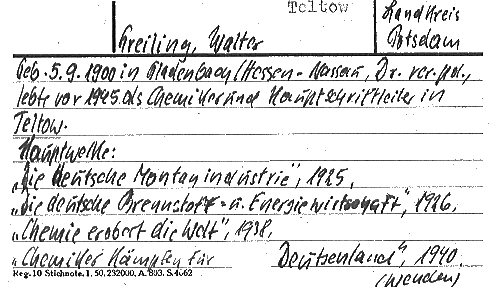 Teltow
Landkreis
Potsdam
Greiling, Walter
Geb. 5.9.1900 in Gladenbach/Hessen-Nassau, Dr. rer. pol.,
lebte vor 1945 als Chemiker und Hauptschriftleiter in
Teltow.
Hauptwerke:
„Die deutsche Montanindustrie", 1925,
„Die deutsche Brennstoff- u. Energiewirtschaft", 1926,
„Chemie erobert die Welt", 1938,
„Chemiker kämpfen für Deutschland", 1940.
Reg. 10 Stichnote. 1, 50, 232000, A. 803. S. 4662
(wenden)